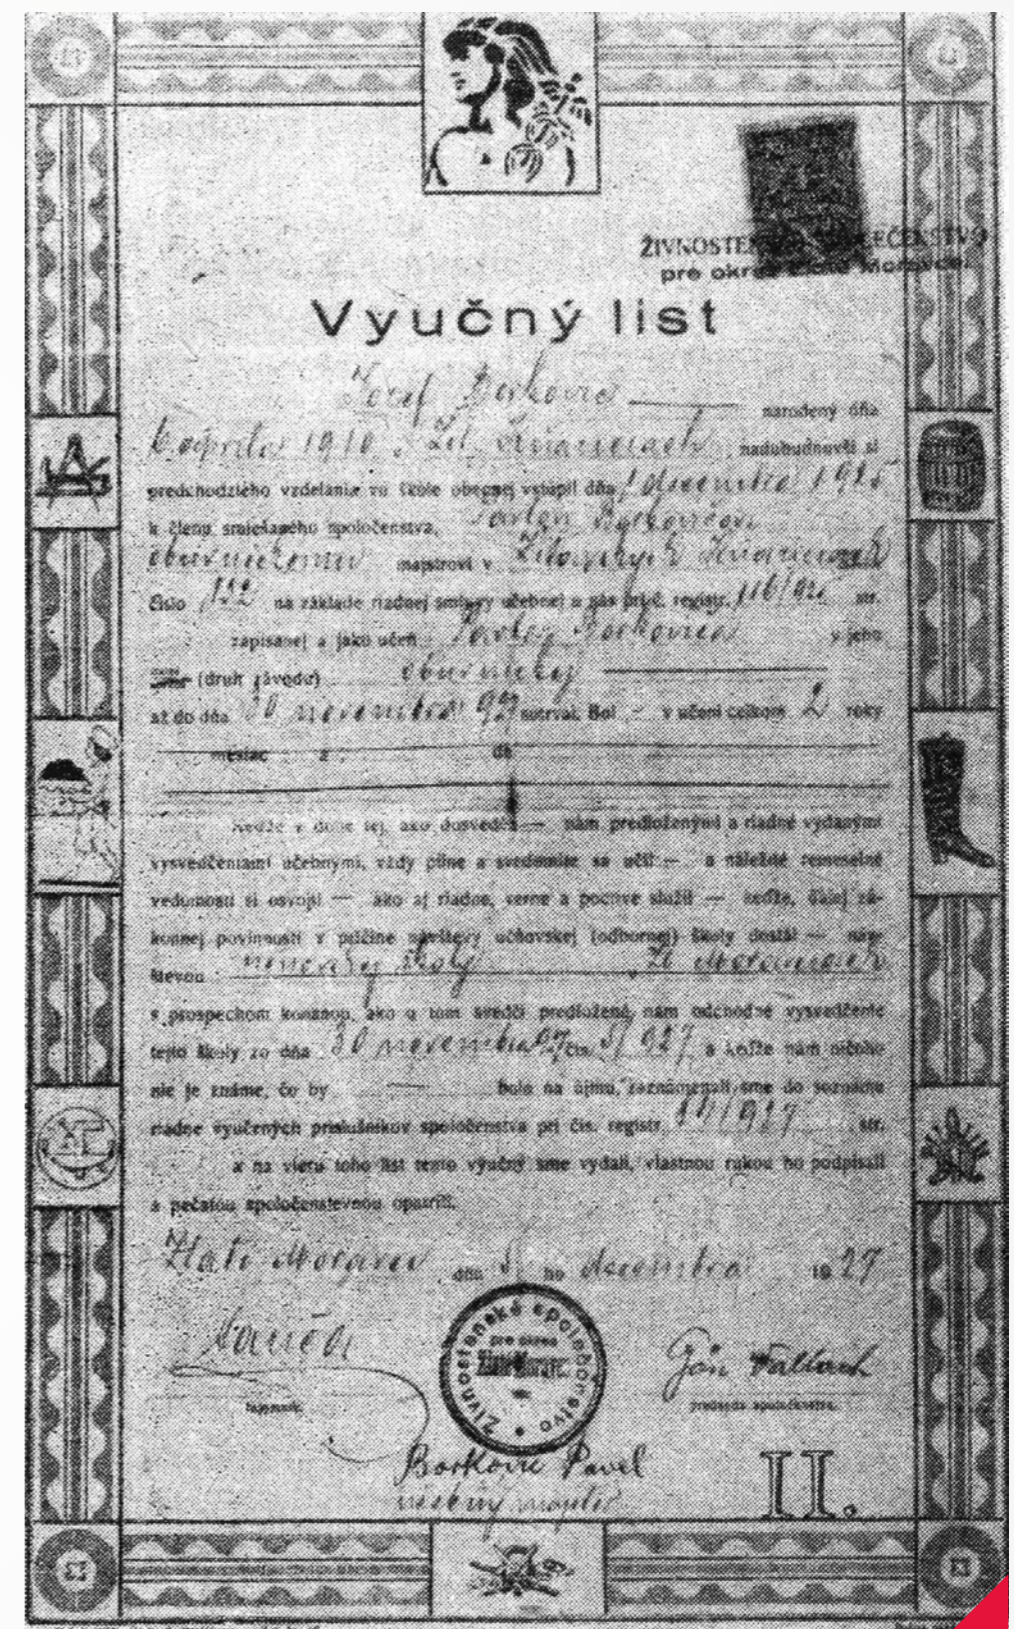 pre okres Zlaté Moravce.
Vyučný list
Jozef Borkovič narodený dňa
6 apríla 1910 v Žit. nadobudnuvší si
predchodzieho vzdelania vo škole obecnej vstúpil dňa 1 decembra 1925
k členu smiešaného spoločenstva, Pavlovi Borkovičovi
obuvníckemu majstrovi v Žitavských
číslo 132 na základe riadnej smluvy učebnej u nás pri č. registr. 116/925 str.
zapísanej a jako učeň Pavla Borkoviča v jeho
(druh závodu) obuvníckej
až do dňa 30 novembra 927 sotrval. Bol — v učení celkom 2 roky
mesiac a dň
Keďže v dobe tej, ako dosvedča — nám predloženými a riadne vydanými
vysvedčeniami učebnými, vždy pilne a svedomite sa učil — a náležité remeselné
vedomosti si osvojil — ako aj riadne, verne a poctive slúžil — keďže, ďalej zá-
konnej povinnosti v príčine návštevy učňovskej (odbornej) školy dostál — náv-
števou školy v Zl. Moravciach
s prospechom konanou, ako o tom svedčí predložené nám odchodné vysvedčenie
tejto školy zo dňa 30 novembra 927 čís. 5/927 a keďže nám ničoho
nie je známe, čo by — bolo na újmu, zaznamenali sme do soznamu
riadne vyučených príslušníkov spoločenstva pri čís. registr. /927 str.
a na vieru toho list tento výučný sme vydali, vlastnou rukou ho podpísali
a pečaťou spoločenstevnou opatrili.
Zlaté Moravce dňa ho decembra 1927
Živnostenské spoločenstvo
pre okres
Zlaté Moravce
Ján
tajomník. predseda spoločenstva.
Borkovič Pavel
učebný majster
II.